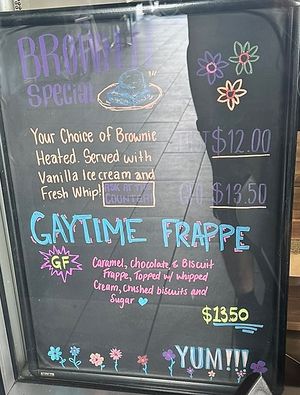 BROWNIE
Special
Your Choice of Brownie
Heated. Served with
Vanilla Ice cream and
Fresh Whip!
ASK AT THE
COUNTER!
$12.00
$13.50
GAYTIME FRAPPE
GF
Caramel, Chocolate & Biscuit
Frappe, Topped w/ whipped
Cream, crushed biscuits and
Sugar
$13.50
YUM!!!